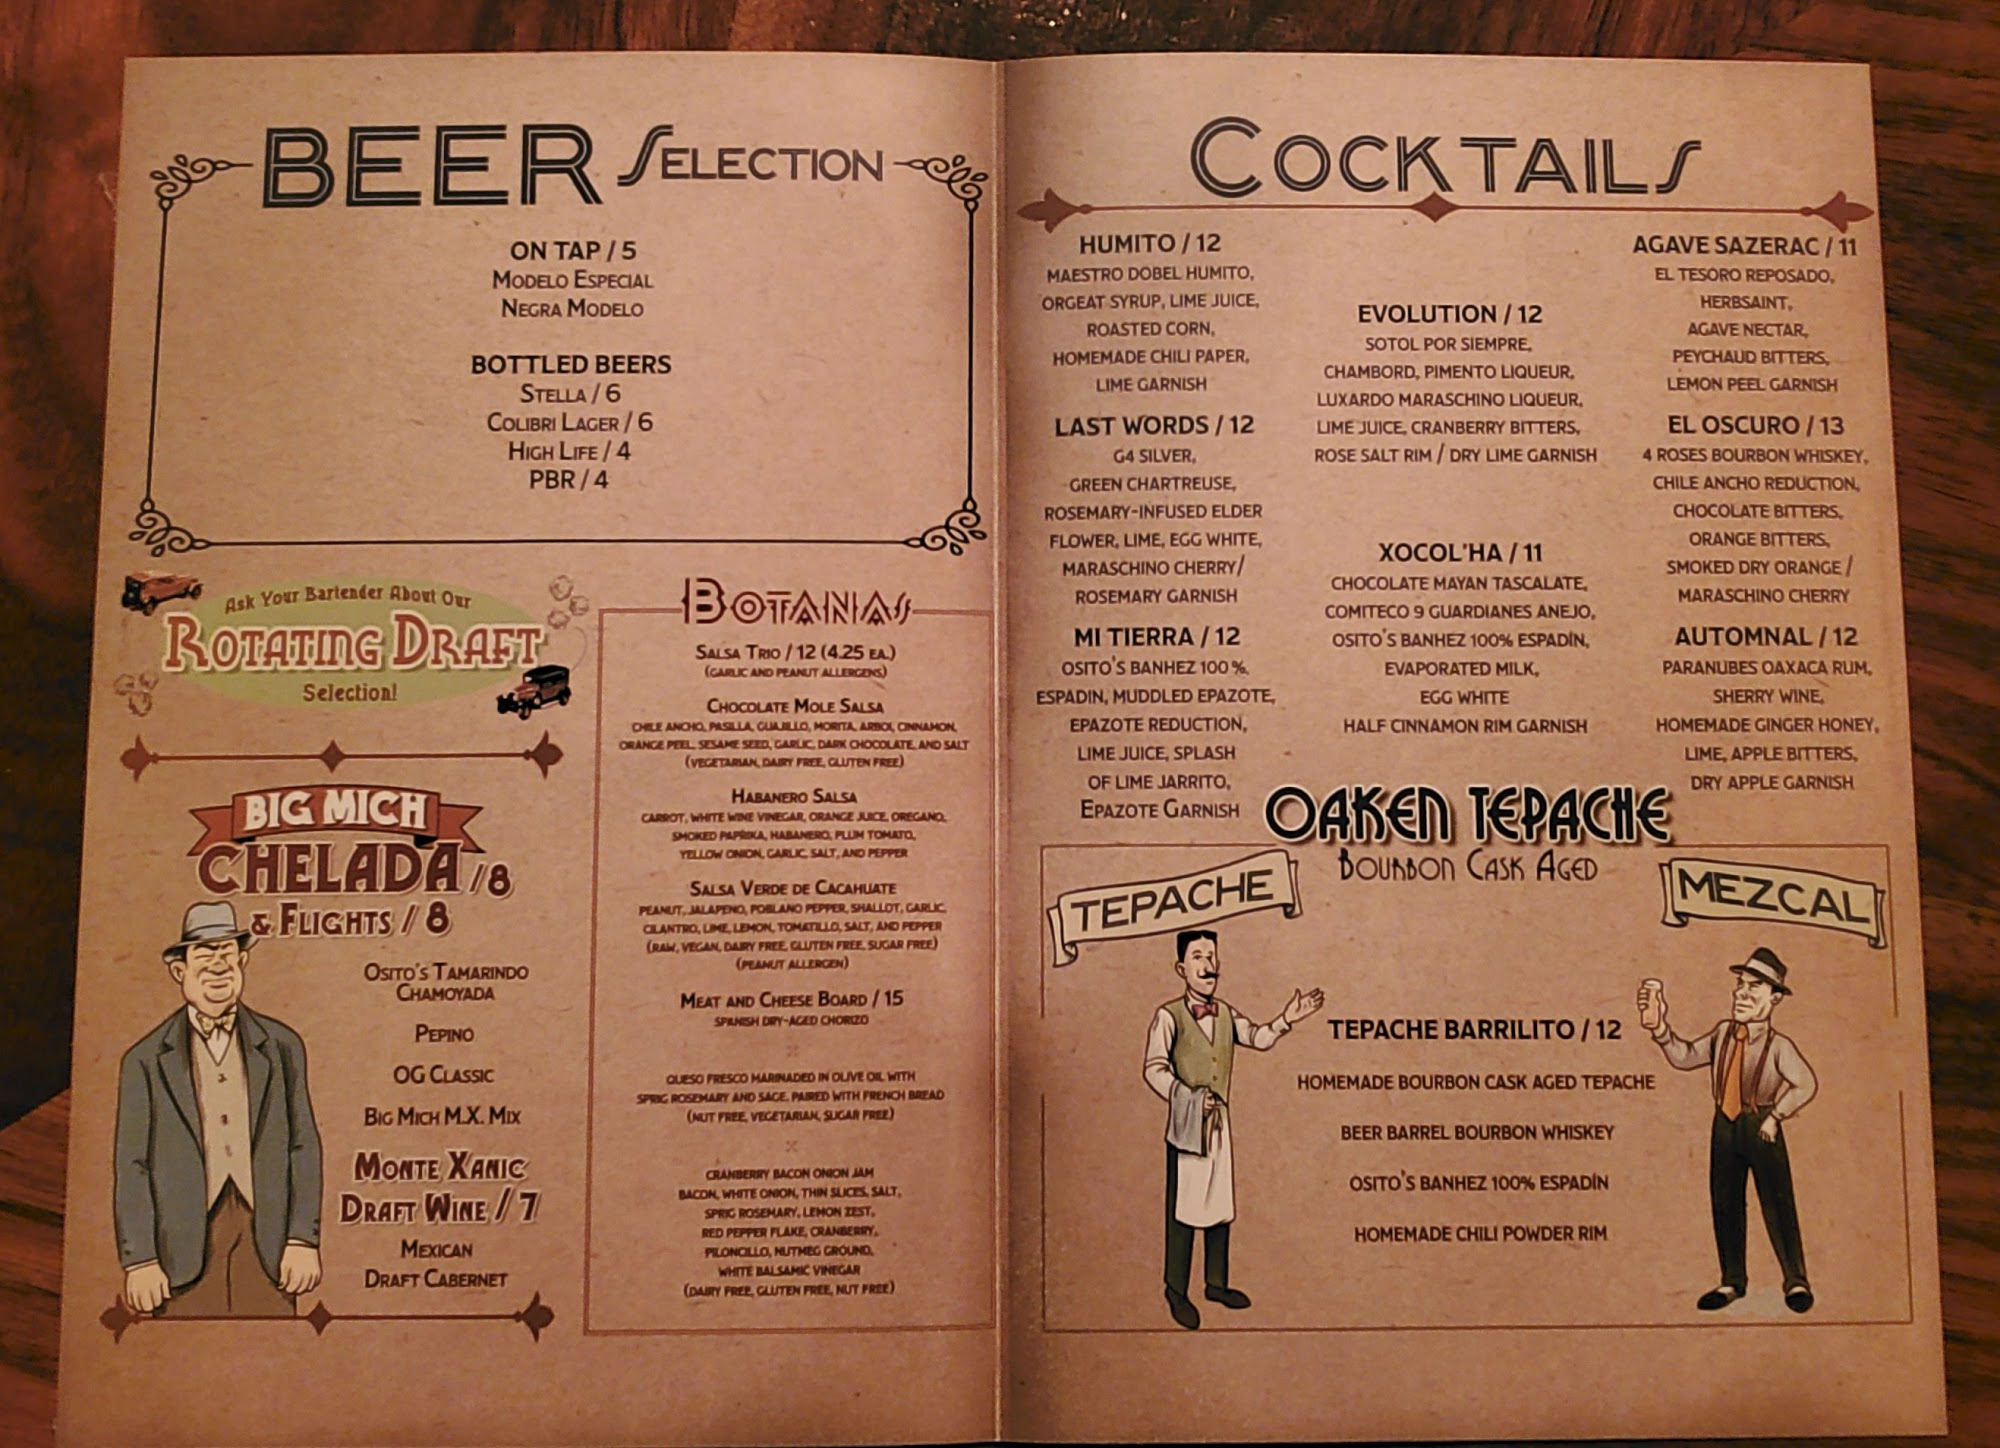 BEER SELECTION
ON TAP / 5
MODELO ESPECIAL
NEGRA MODELO
BOTTLED BEERS
STELLA / 6
COLIBRI LAGER / 6
HIGH LIFE / 4
PBR / 4
Ask Your Bartender About Our
ROTATING DRAFT
Selection!
BIG MICH
CHELADA / 8
& FLIGHTS / 8
OSITO'S TAMARINDO
CHAMOYADA
PEPINO
OG CLASSIC
BIG MICH M.X. MIX
MONTE XANIC
DRAFT WINE / 7
MEXICAN
DRAFT CABERNET
BOTANAS
SALSA TRIO / 12 (4.25 EA.)
(GARLIC AND PEANUT ALLERGENS)
CHOCOLATE MOLE SALSA
CHILE ANCHO, PASILLA, GUAJILLO, MORITA, ARBOL CINNAMON,
ORANGE PEEL, SESAME SEED, GARLIC, DARK CHOCOLATE, AND SALT
(VEGETARIAN, DAIRY FREE, GLUTEN FREE)
HABANERO SALSA
CARROT, WHITE WINE VINEGAR, ORANGE JUICE, OREGANO,
SMOKED PAPRIKA, HABANERO, PLUM TOMATO,
YELLOW ONION, GARLIC, SALT, AND PEPPER
SALSA VERDE DE CACAHUATE
PEANUT, JALAPENO, POBLANO PEPPER, SHALLOT, GARLIC,
CILANTRO, LIME, LEMON, TOMATILLO, SALT, AND PEPPER
(RAW, VEGAN, DAIRY FREE, GLUTEN FREE, SUGAR FREE)
(PEANUT ALLERGEN)
MEAT AND CHEESE BOARD / 15
SPANISH DRY-AGED CHORIZO
QUESO FRESCO MARINADED IN OLIVE OIL WITH
SPRIG ROSEMARY AND SAGE, PAIRED WITH FRENCH BREAD
(NUT FREE, VEGETARIAN, SUGAR FREE)
CRANBERRY BACON ONION JAM
BACON, WHITE ONION, THIN SLICES, SALT,
SPRIG ROSEMARY, LEMON ZEST,
RED PEPPER FLAKE, CRANBERRY,
PILONCILLO, NUTMEG GROUND,
WHITE BALSAMIC VINEGAR
(DAIRY FREE, GLUTEN FREE, NUT FREE)
COCKTAILS
HUMITO / 12
MAESTRO DOBEL HUMITO,
ORGEAT SYRUP, LIME JUICE,
ROASTED CORN,
HOMEMADE CHILI PAPER,
LIME GARNISH
LAST WORDS / 12
G4 SILVER,
GREEN CHARTREUSE,
ROSEMARY-INFUSED ELDER
FLOWER, LIME, EGG WHITE,
MARASCHINO CHERRY/
ROSEMARY GARNISH
MI TIERRA / 12
OSITO'S BANHEZ 100%.
ESPADIN, MUDDLED EPAZOTE,
EPAZOTE REDUCTION,
LIME JUICE, SPLASH
OF LIME JARRITO,
EPAZOTE GARNISH
EVOLUTION / 12
SOTOL POR SIEMPRE,
CHAMBORD, PIMENTO LIQUEUR,
LUXARDO MARASCHINO LIQUEUR,
LIME JUICE, CRANBERRY BITTERS,
ROSE SALT RIM / DRY LIME GARNISH
XOCOL'HA / 11
CHOCOLATE MAYAN TASCALATE,
COMITECO 9 GUARDIANES ANEJO,
OSITO'S BANHEZ 100% ESPADÍN,
EVAPORATED MILK,
EGG WHITE
HALF CINNAMON RIM GARNISH
AGAVE SAZERAC / 11
EL TESORO REPOSADO,
HERBSAINT,
AGAVE NECTAR,
PEYCHAUD BITTERS,
LEMON PEEL GARNISH
EL OSCURO / 13
4 ROSES BOURBON WHISKEY,
CHILE ANCHO REDUCTION,
CHOCOLATE BITTERS,
ORANGE BITTERS,
SMOKED DRY ORANGE /
MARASCHINO CHERRY
AUTOMNAL / 12
PARANUBES OAXACA RUM,
SHERRY WINE,
HOMEMADE GINGER HONEY,
LIME, APPLE BITTERS,
DRY APPLE GARNISH
OAKEN TEPACHE
BOURBON CASK AGED
TEPACHE
MEZCAL
TEPACHE BARRILITO / 12
HOMEMADE BOURBON CASK AGED TEPACHE
BEER BARREL BOURBON WHISKEY
OSITO'S BANHEZ 100% ESPADÍN
HOMEMADE CHILI POWDER RIM